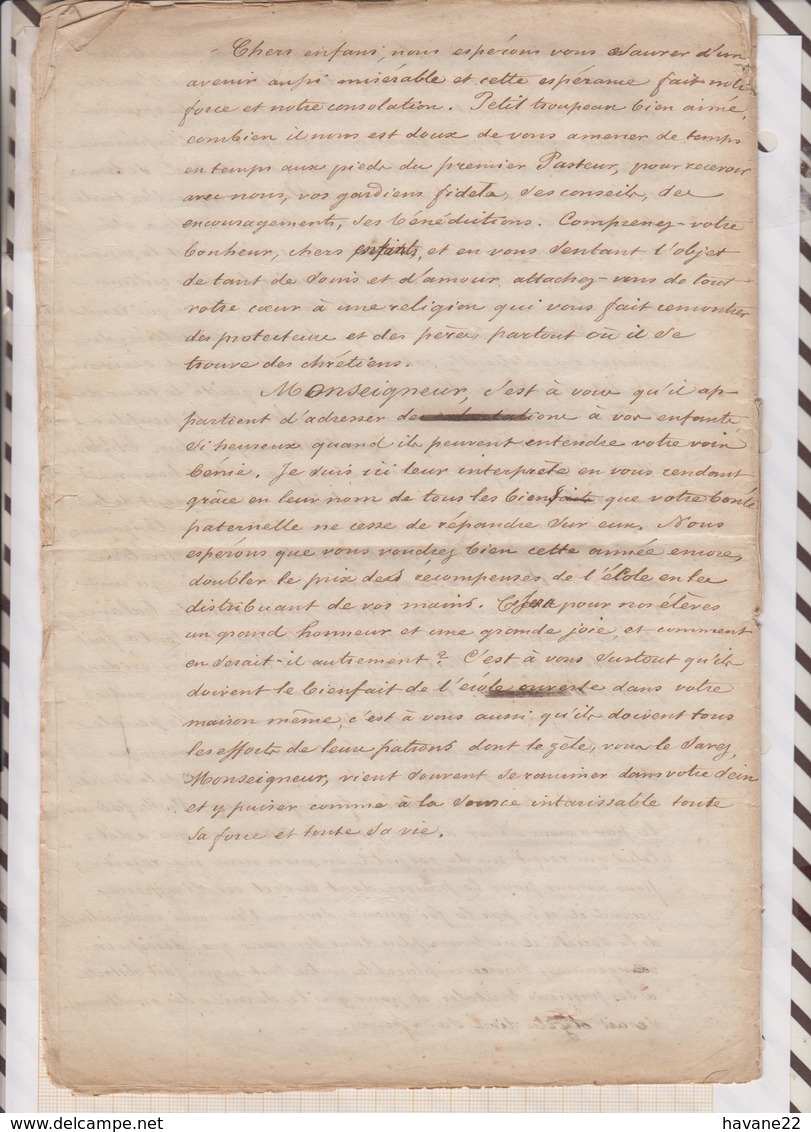 Chers enfans, nous espérons vous sauver d'un
avenir aussi misérable et cette espérance fait notre
force et notre consolation. Petit troupeau bien aimé,
combien il nous est doux de vous amener de temps
en temps aux pieds du premier Pasteur, pour recevoir
avec nous, vos gardiens fidels, des conseils, des
encouragements, des bénédictions. Comprenez-votre
bonheur, chers enfants, et en vous sentant l'objet
de tant de soins et d'amour, attachez-vous de tout
votre cœur à une religion qui vous fait rencontrer
des protecteurs et des pères partout où il se
trouve des chrétiens.
Monseigneur, c'est à vous qu'il ap-
partient d'adresser des à vos enfants,
si heureux quand ils peuvent entendre votre voix
benie. Je suis ici leur interprète en vous rendant
grâce en leur nom de tous les bienfaits que votre bonté
paternelle ne cesse de répandre sur eux. Nous
espérons que vous voudrez bien cette année encore,
doubler le prix des récompenses de l'école en les
distribuant de vos mains. Ce sera pour nos élèves
un grand honneur et une grande joie, et comment
en serait-il autrement? C'est à vous surtout qu'ils
doivent le bienfait de l'école ouverte dans votre
maison même, c'est à vous aussi qu'ils doivent tous
les efforts de leurs patrons dont le zèle, vous le savez,
Monseigneur, vient souvent se ranimer dans votre sein
et y puiser comme à la source intarissable toute
sa force et toute sa vie.
havane22